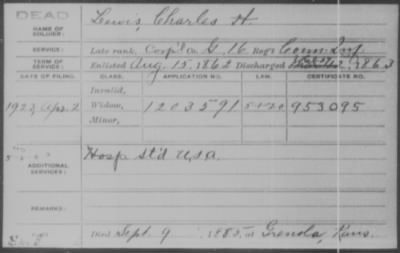 DEAD
NAME OF SOLDIER: Lewis, Charles H
SERVICE: Late rank, Corp'l Co. G. 16, Reg't Conn. Inf.
TERM OF SERVICE: Enlisted Aug. 15, 1862 Discharged 1863
DATE OF FILING. CLASS. APPLICATION NO. LAW. CERTIFICATE NO.
Invalid,
1923, Apr. 2 Widow, 1203591 953095
Minor,
ADDITIONAL SERVICES: Hosp. St'd U.S.A.
REMARKS:
Died Sept. 9 1885, at Grenola, Kans.